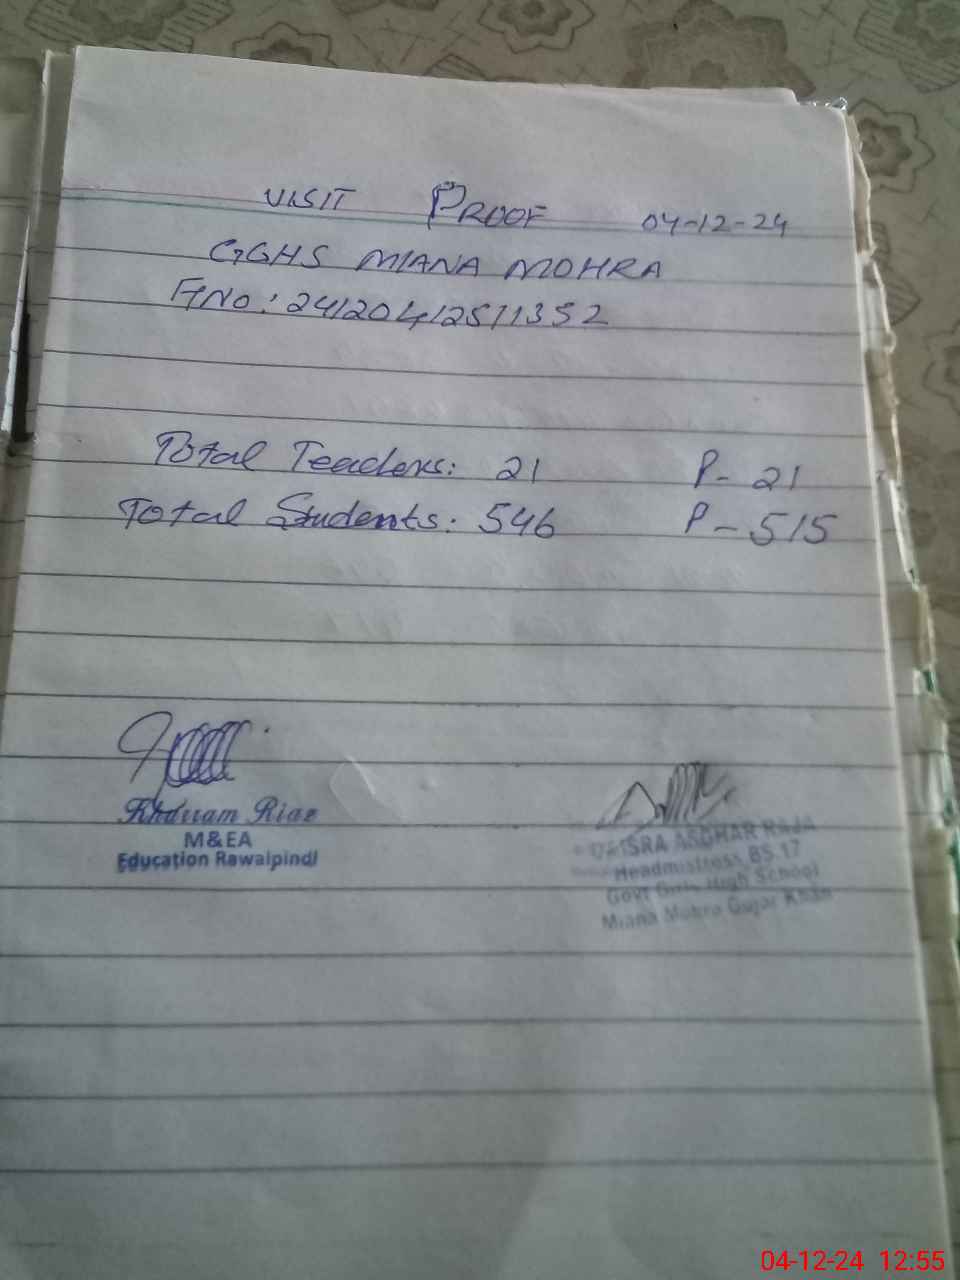 VISIT PROOF 04-12-24
GGHS MIANA MOHRA
F.No: 24120412511352
Total Teachers: 21 P- 21
Total Students: 546 P - 515
Khurram Riaz
M&EA
Education Rawalpindi
ASGHAR RAJA
Headmistress BS.17
Govt Girls High School
Miana Mohra Gujar Khan
04-12-24 12:55